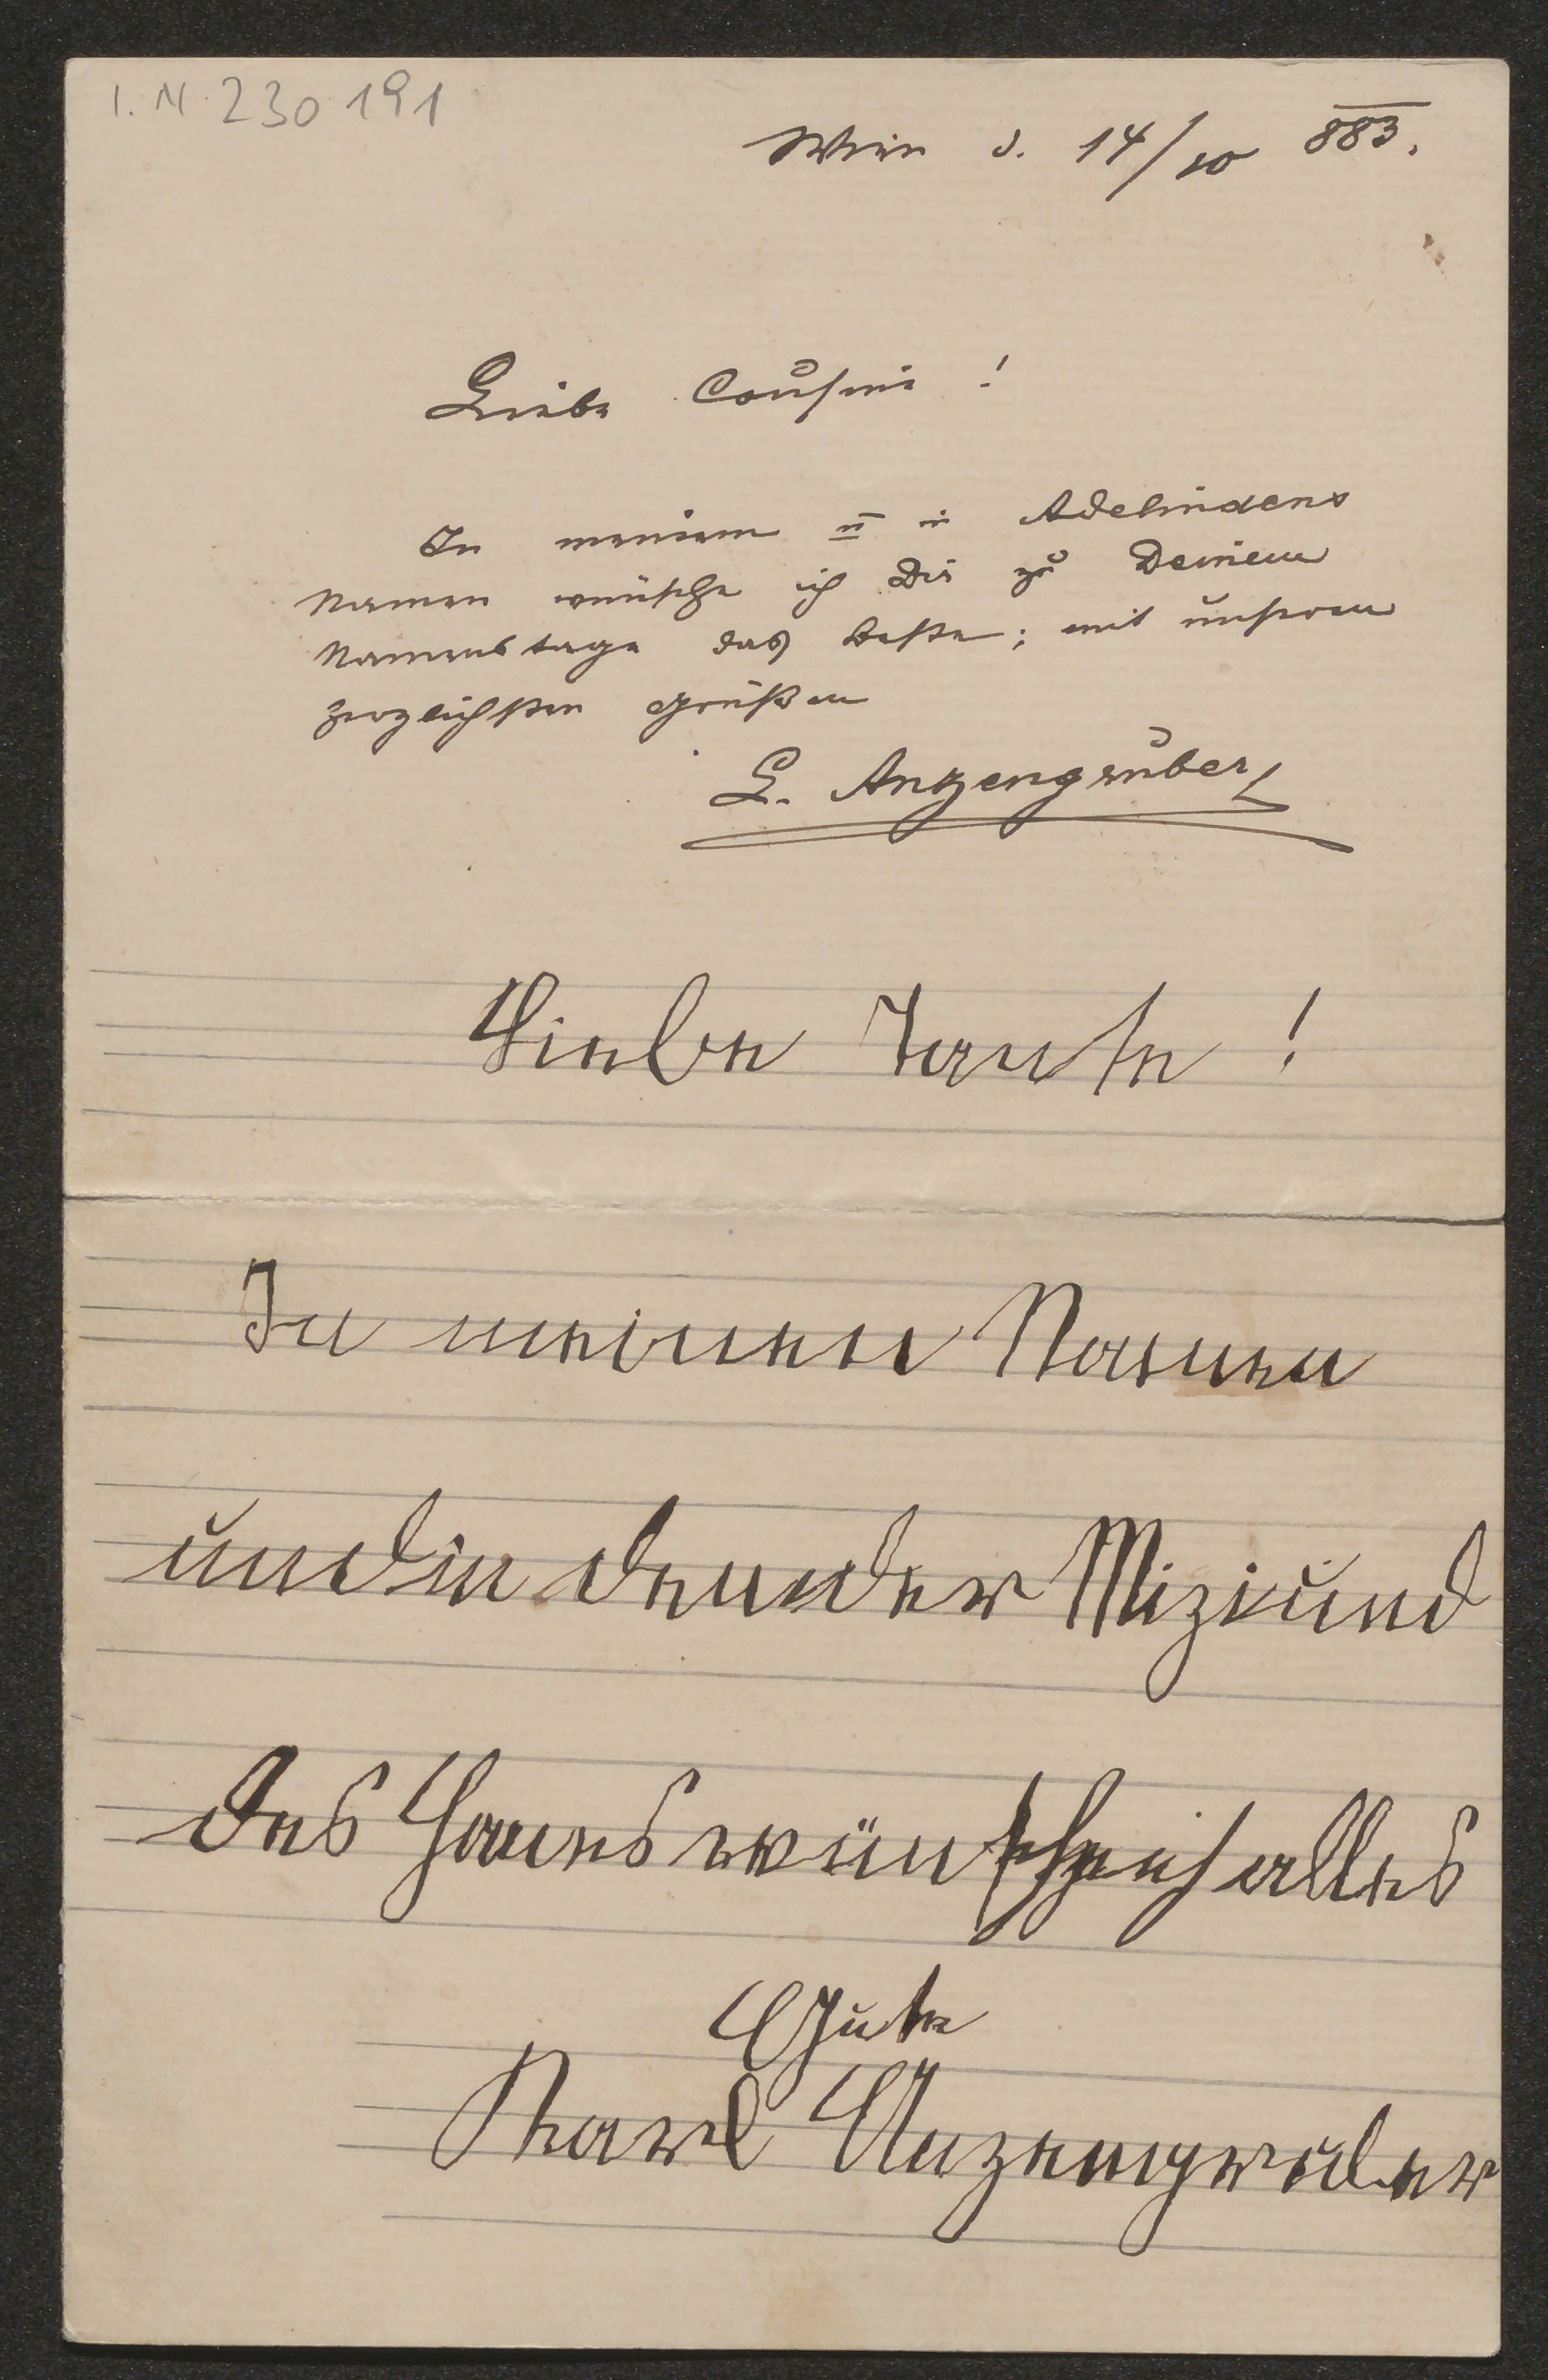 I. N. 230.191
Wien d. 14/10 883.
Liebe Cousine!
In meinem u in Adelindens
Namen wünsche ich Dir zu Deinem
Namenstage das beste; mit unseren
herzlichsten Grüßen
L. Anzengruber
Liebe Tante!
In meinen Namen
und in den der Mizi und
des Hans wünsche ich alles
Gute
Karl Anzengruber